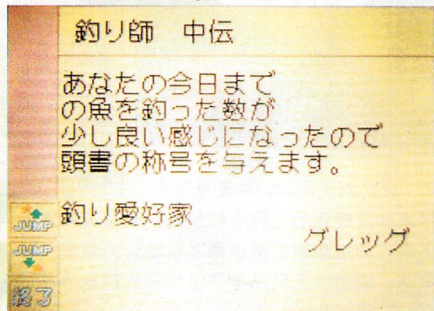 釣り師　中伝
あなたの今日まで
の魚を釣った数が
少し良い感じになったので
頭書の称号を与えます。
釣り愛好家
グレッグ
JUMP
JUMP
終了